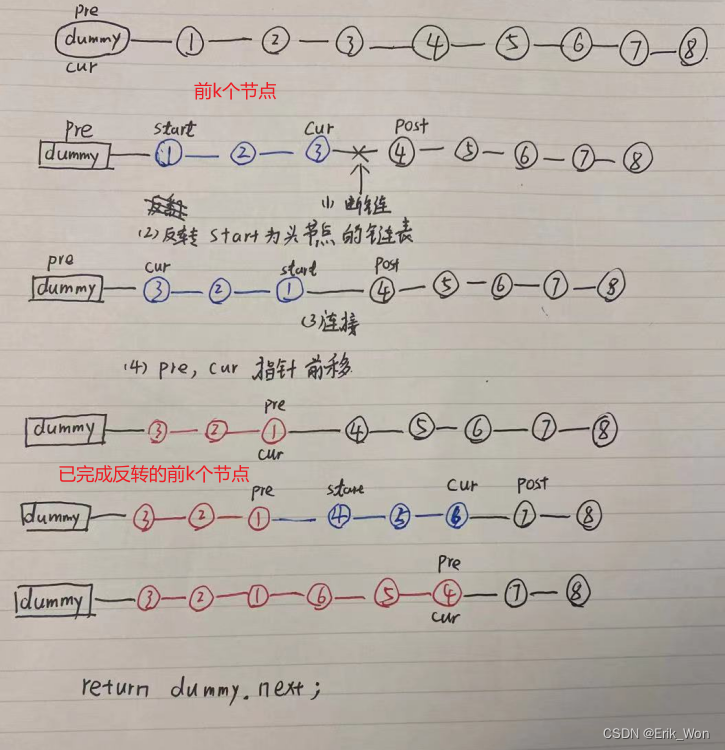 pre
dummy 1 2 3 4 5 6 7 8
cur
前k个节点
pre start cur post
dummy 1 2 3 4 5 6 7 8
(1) 断链
(2) 反转 start 为头节点的链表
pre cur start post
dummy 3 2 1 4 5 6 7 8
(3) 连接
(4) pre, cur 指针前移
pre
dummy 3 2 1 4 5 6 7 8
cur
已完成反转的前k个节点
pre start cur post
dummy 3 2 1 4 5 6 7 8
pre
dummy 3 2 1 6 5 4 7 8
cur
return dummy.next;
CSDN @Erik_Won